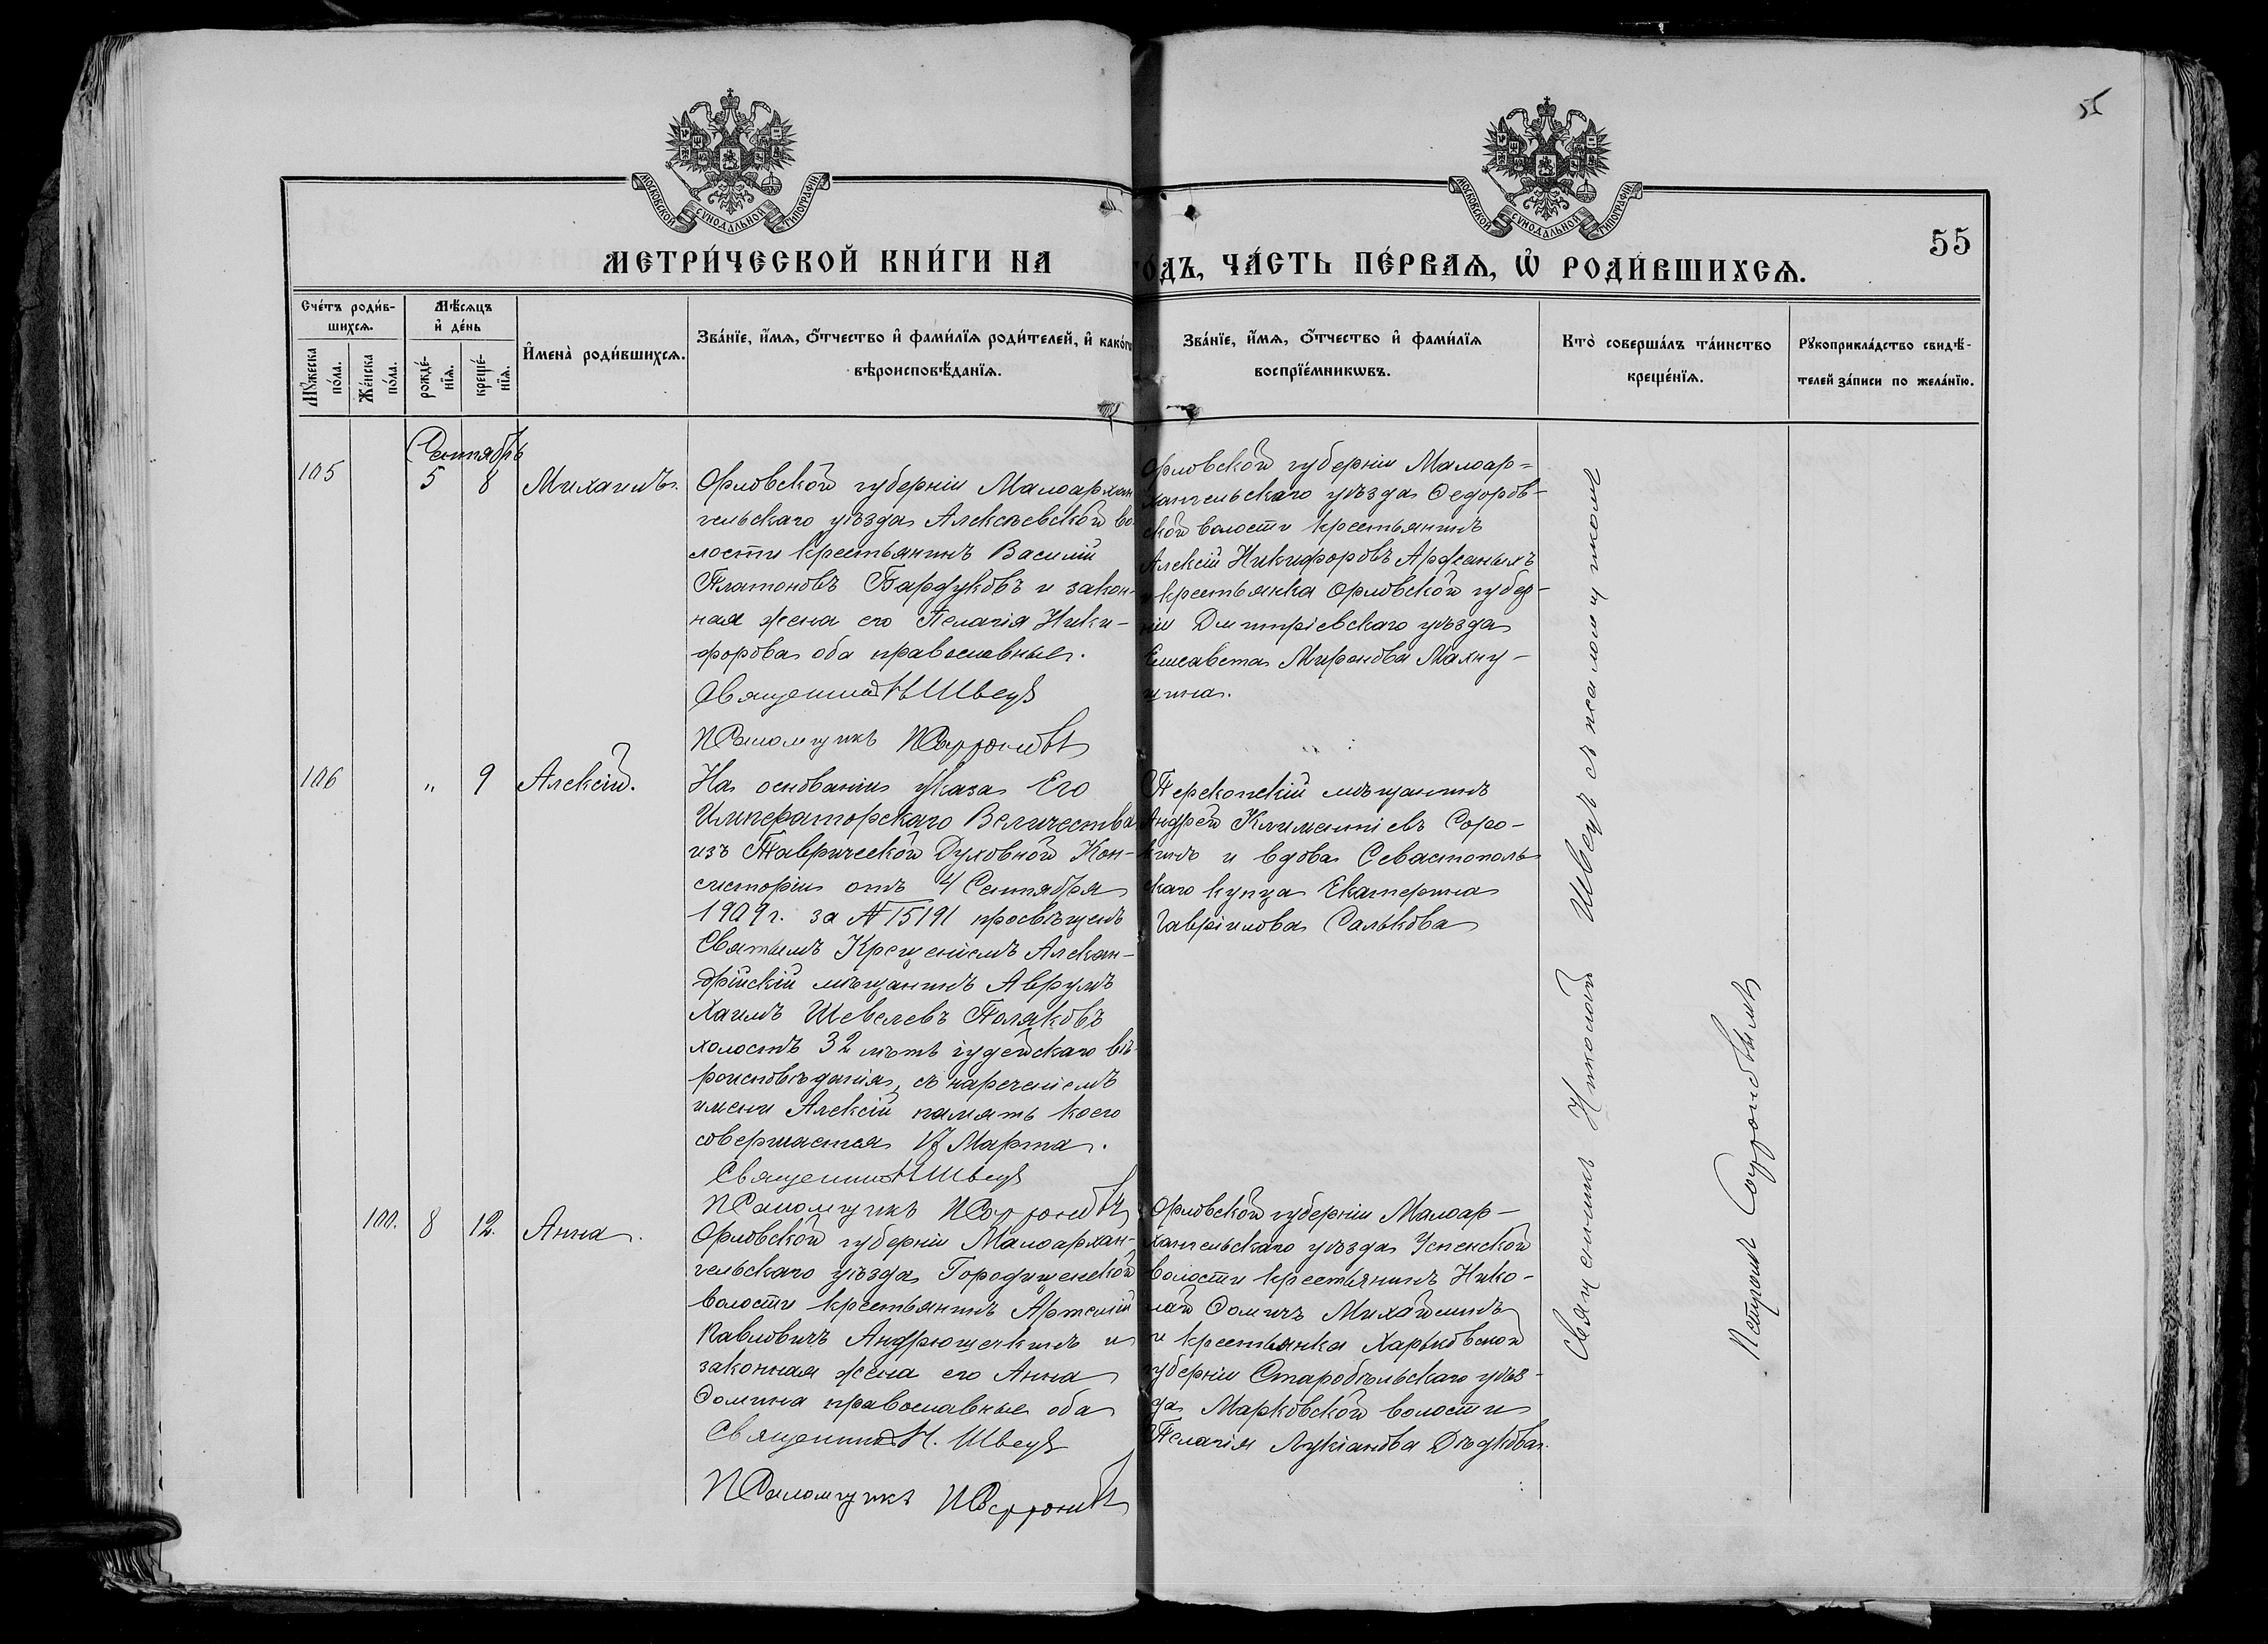 55
МОСКОВСКОЙ СѴНОДАЛЬНОЙ ТИПОГРАФІИ
МОСКОВСКОЙ СѴНОДАЛЬНОЙ ТИПОГРАФІИ
55
МЕТРИ́ЧЕСКОЙ КНИ́ГИ НА
ГО́ДЪ, ЧА́СТЬ ПЕ́РВАѦ, Ѡ҆ РОДИ́ВШИХСѦ.
Сче́тъ роди́в-
шихсѧ.
Мꙋ́жеска
по́ла.
Же́нска
по́ла.
Мѣ́сѧцъ
и҆ де́нь
рожде́-
нїѧ.
креще́-
нїѧ.
И҆мена̀ роди́вшихсѧ.
Зва́нїе, и҆́мѧ, ѻ҆́тчество и҆ фами́лїѧ роди́телей, и҆ како́гѡ
вѣроисповѣ́данїѧ.
Зва́нїе, и҆́мѧ, ѻ҆́тчество и҆ фами́лїѧ
воспрїе́мникѡвъ.
Кто̀ соверша́лъ та́инство
креще́нїѧ.
Рꙋкоприкла́дство свидѣ́-
телей за́писи по жела́нїю.
Сентябрь
105
5 8
Михаилъ.
Орловской губерніи Малоархан
гельскаго уѣзда Алексѣевской во-
лости крестьянинъ Василій
Платоновъ Бардуковъ и закон-
ная жена его Пелагія Ники-
форова оба православные.
Священникъ Н Швецъ
Псаломщикъ П
Орловской губерніи Малоар-
хангельскаго уѣзда Ѳедоров-
ской волости крестьянинъ
Алексій Никифоровъ Аржаныхъ
и крестьянка Орловской губер-
ніи Дмитріевскаго уѣзда
Елисавета Миронова Махну-
щина.
106
" 9
Алексій.
На основаніи Указа Его
Императорскаго Величества
изъ Таврической Духовной Кон-
систоріи отъ 4 Сентября
1909 г. за № 15191 просвѣщенъ
Святымъ Крещеніемъ Алексан-
дрійскій мѣщанинъ Аврумъ
Хаимъ Шевелевъ Поляковъ
холостъ 32 лѣтъ іудейскаго вѣ-
роисповѣданія, съ нареченіемъ
имени Алексій память коего
совершается 17 Марта.
Священникъ Н Швецъ
Псаломщикъ П
Перекопскій мѣщанинъ
Андрей Климентіевъ Соро-
кинъ и вдова Севастополь
скаго купца Екатерина
Гавріилова Салькова
100.
8 12.
Анна.
Орловской губерніи Малоархан-
гельскаго уѣзда Городищенской
волости крестьянинъ Артемій
Павловичъ Андрющенкинъ и
законная жена его Анна
Ѳомина православные оба
Священникъ Н. Швецъ
Псаломщикъ П
Орловской губерніи Малоар-
хангельскаго уѣзда Успенской
волости крестьянинъ Нико-
лай Ѳомичъ Михайлинъ
и крестьянка Харьковской
губерніи Старобѣльскаго уѣз-
да Марковской волости
Пелагія Лукіанова Дѣдкова.
Священникъ Николай Швецъ съ псаломщикомъ
Петромъ